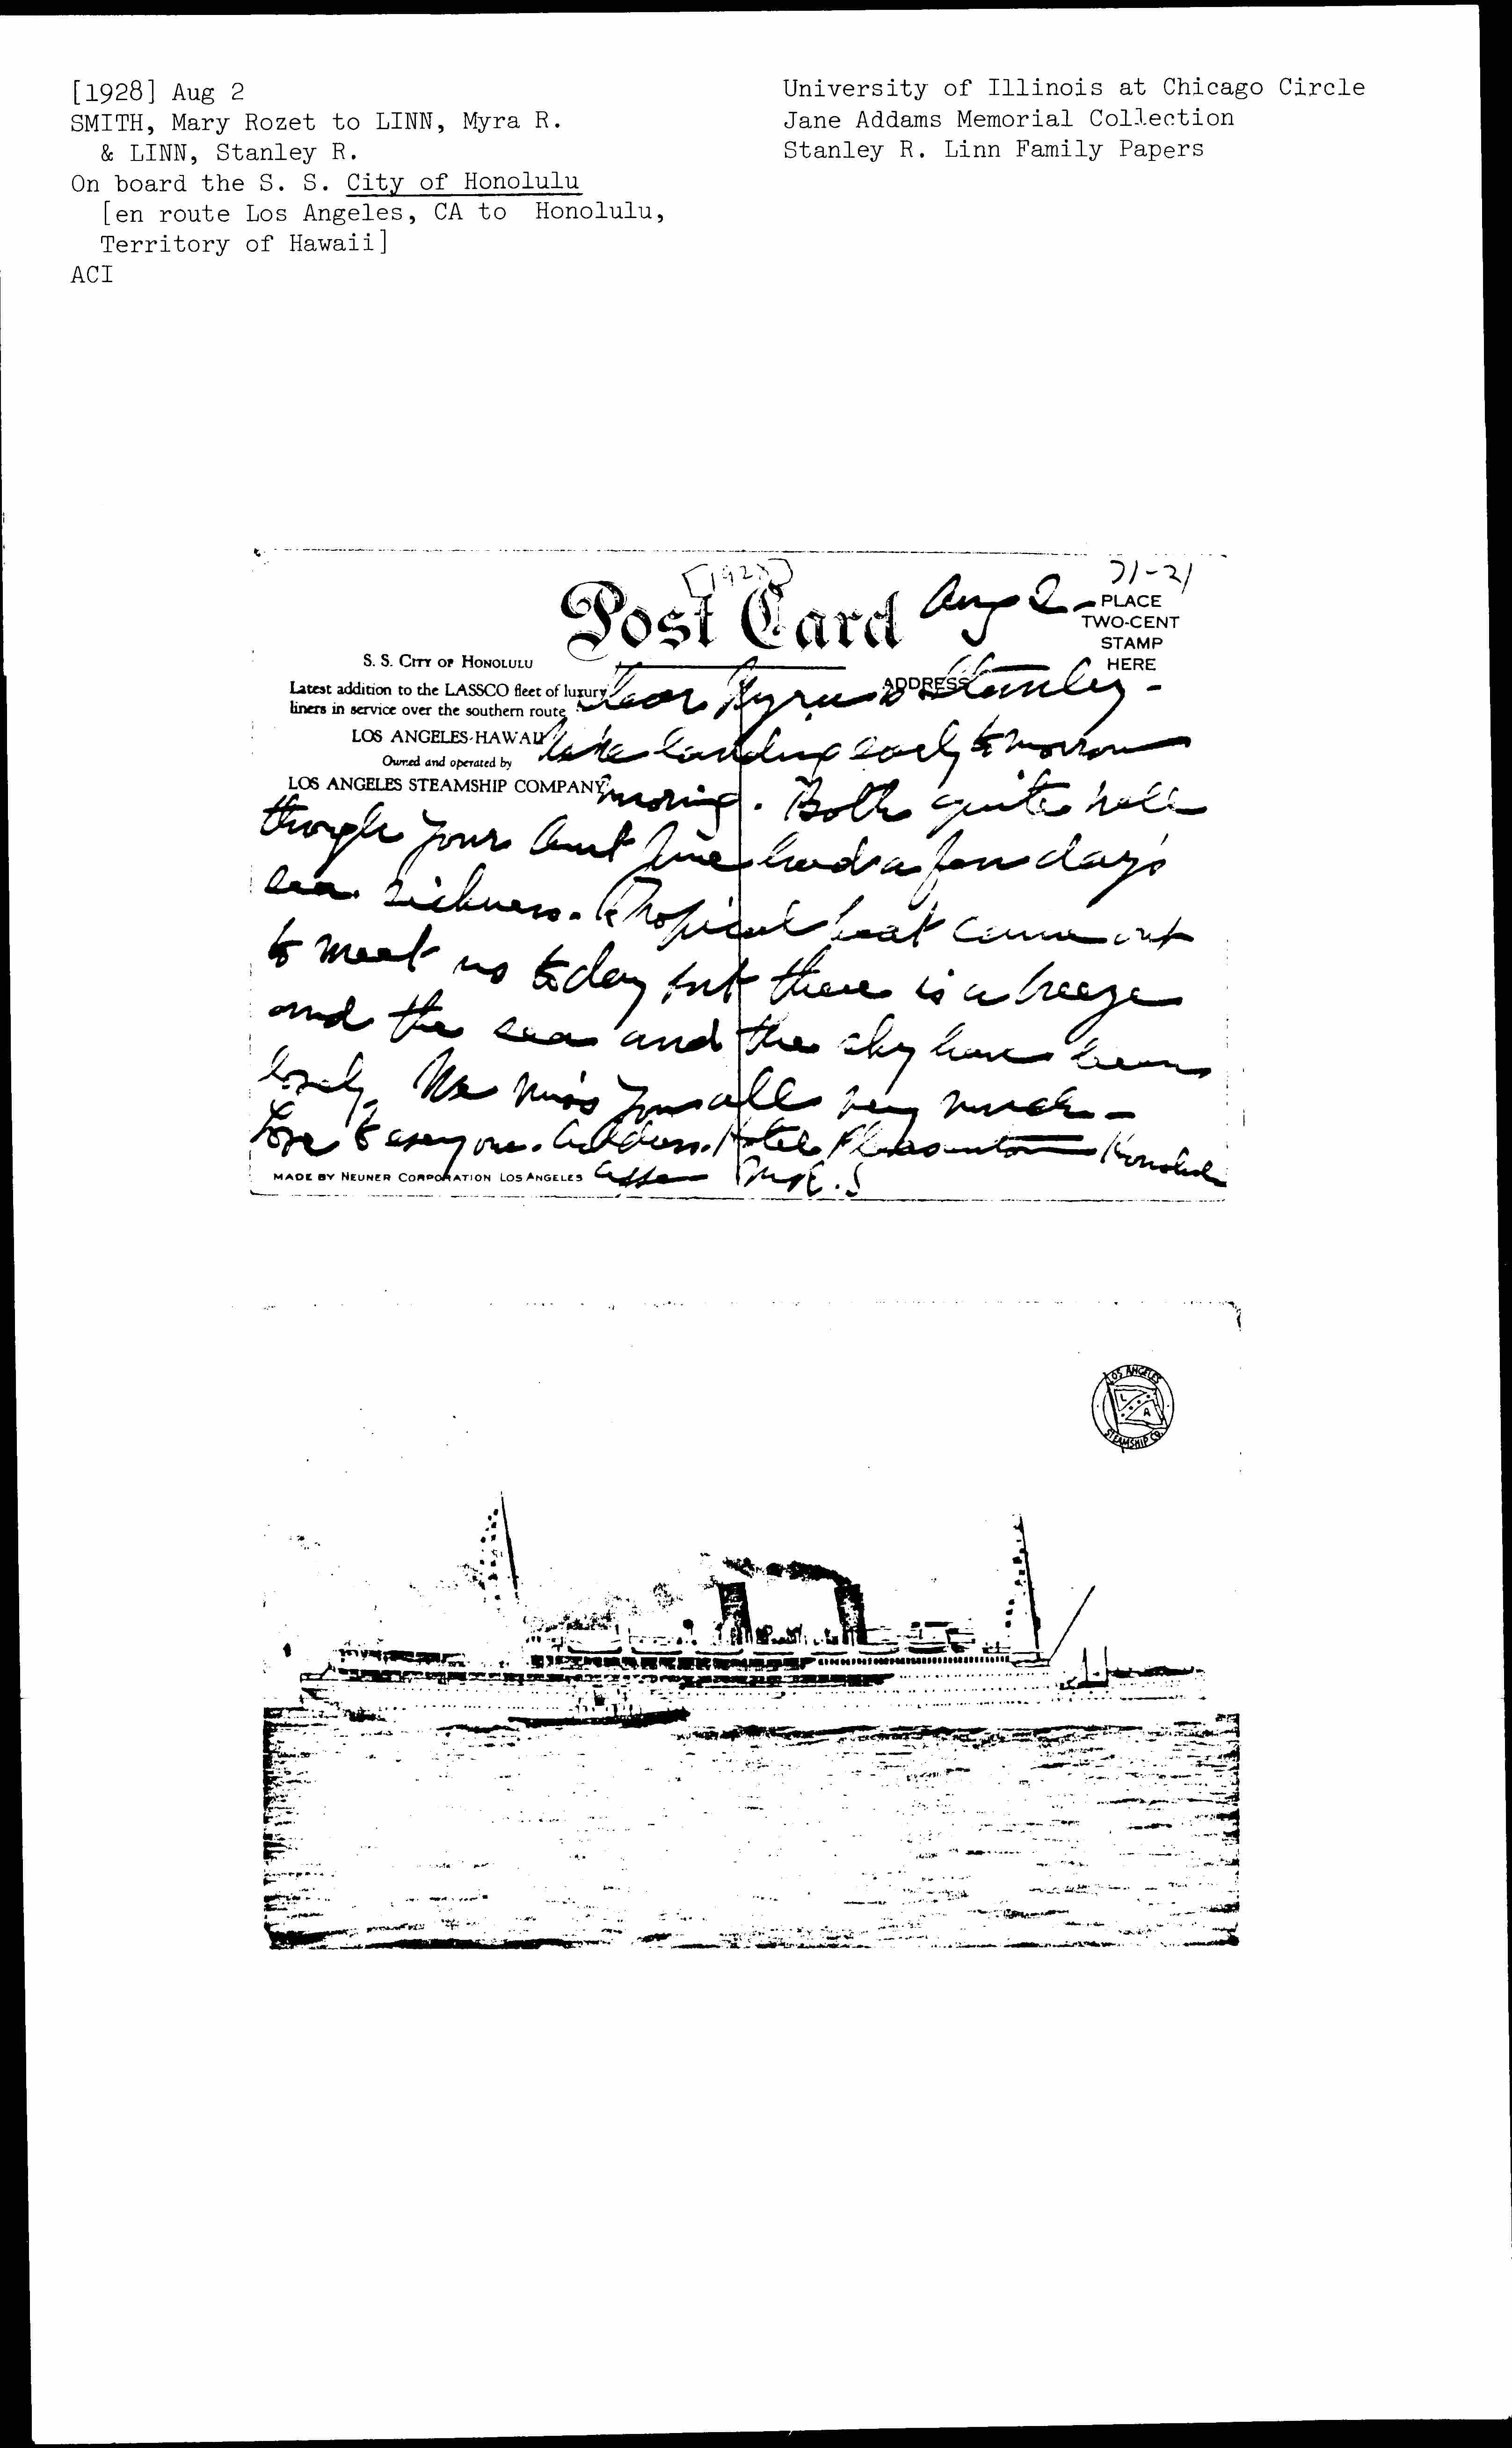 [1928] Aug 2
SMITH, Mary Rozet to LINN, Myra R.
& LINN, Stanley R.
On board the S. S. City of Honolulu
[en route Los Angeles, CA to Honolulu,
Territory of Hawaii]
ACI
University of Illinois at Chicago Circle
Jane Addams Memorial Collection
Stanley R. Linn Family Papers
[1928]
71-21
Post Card
Aug 2 -
PLACE
TWO-CENT
STAMP
HERE
ADDRESS
S. S. CITY OF HONOLULU
Latest addition to the LASSCO fleet of luxury
liners in service over the southern route
LOS ANGELES-HAWAII
Owned and operated by
LOS ANGELES STEAMSHIP COMPANY
Dear Myra & Stanley -
We're landing early tomorrow
morning. Both quite well
though your Aunt Jane had a few days
sea sickness. Tropical heat came out
to meet us today but there is a breeze
and the sea and the sky have been
lovely. We miss you all very much -
Love to everyone. Address. Hotel Pleasanton Honolulu
M R. S
MADE BY NEUNER CORPORATION LOS ANGELES
LOS ANGELES
L A
STEAMSHIP CO.